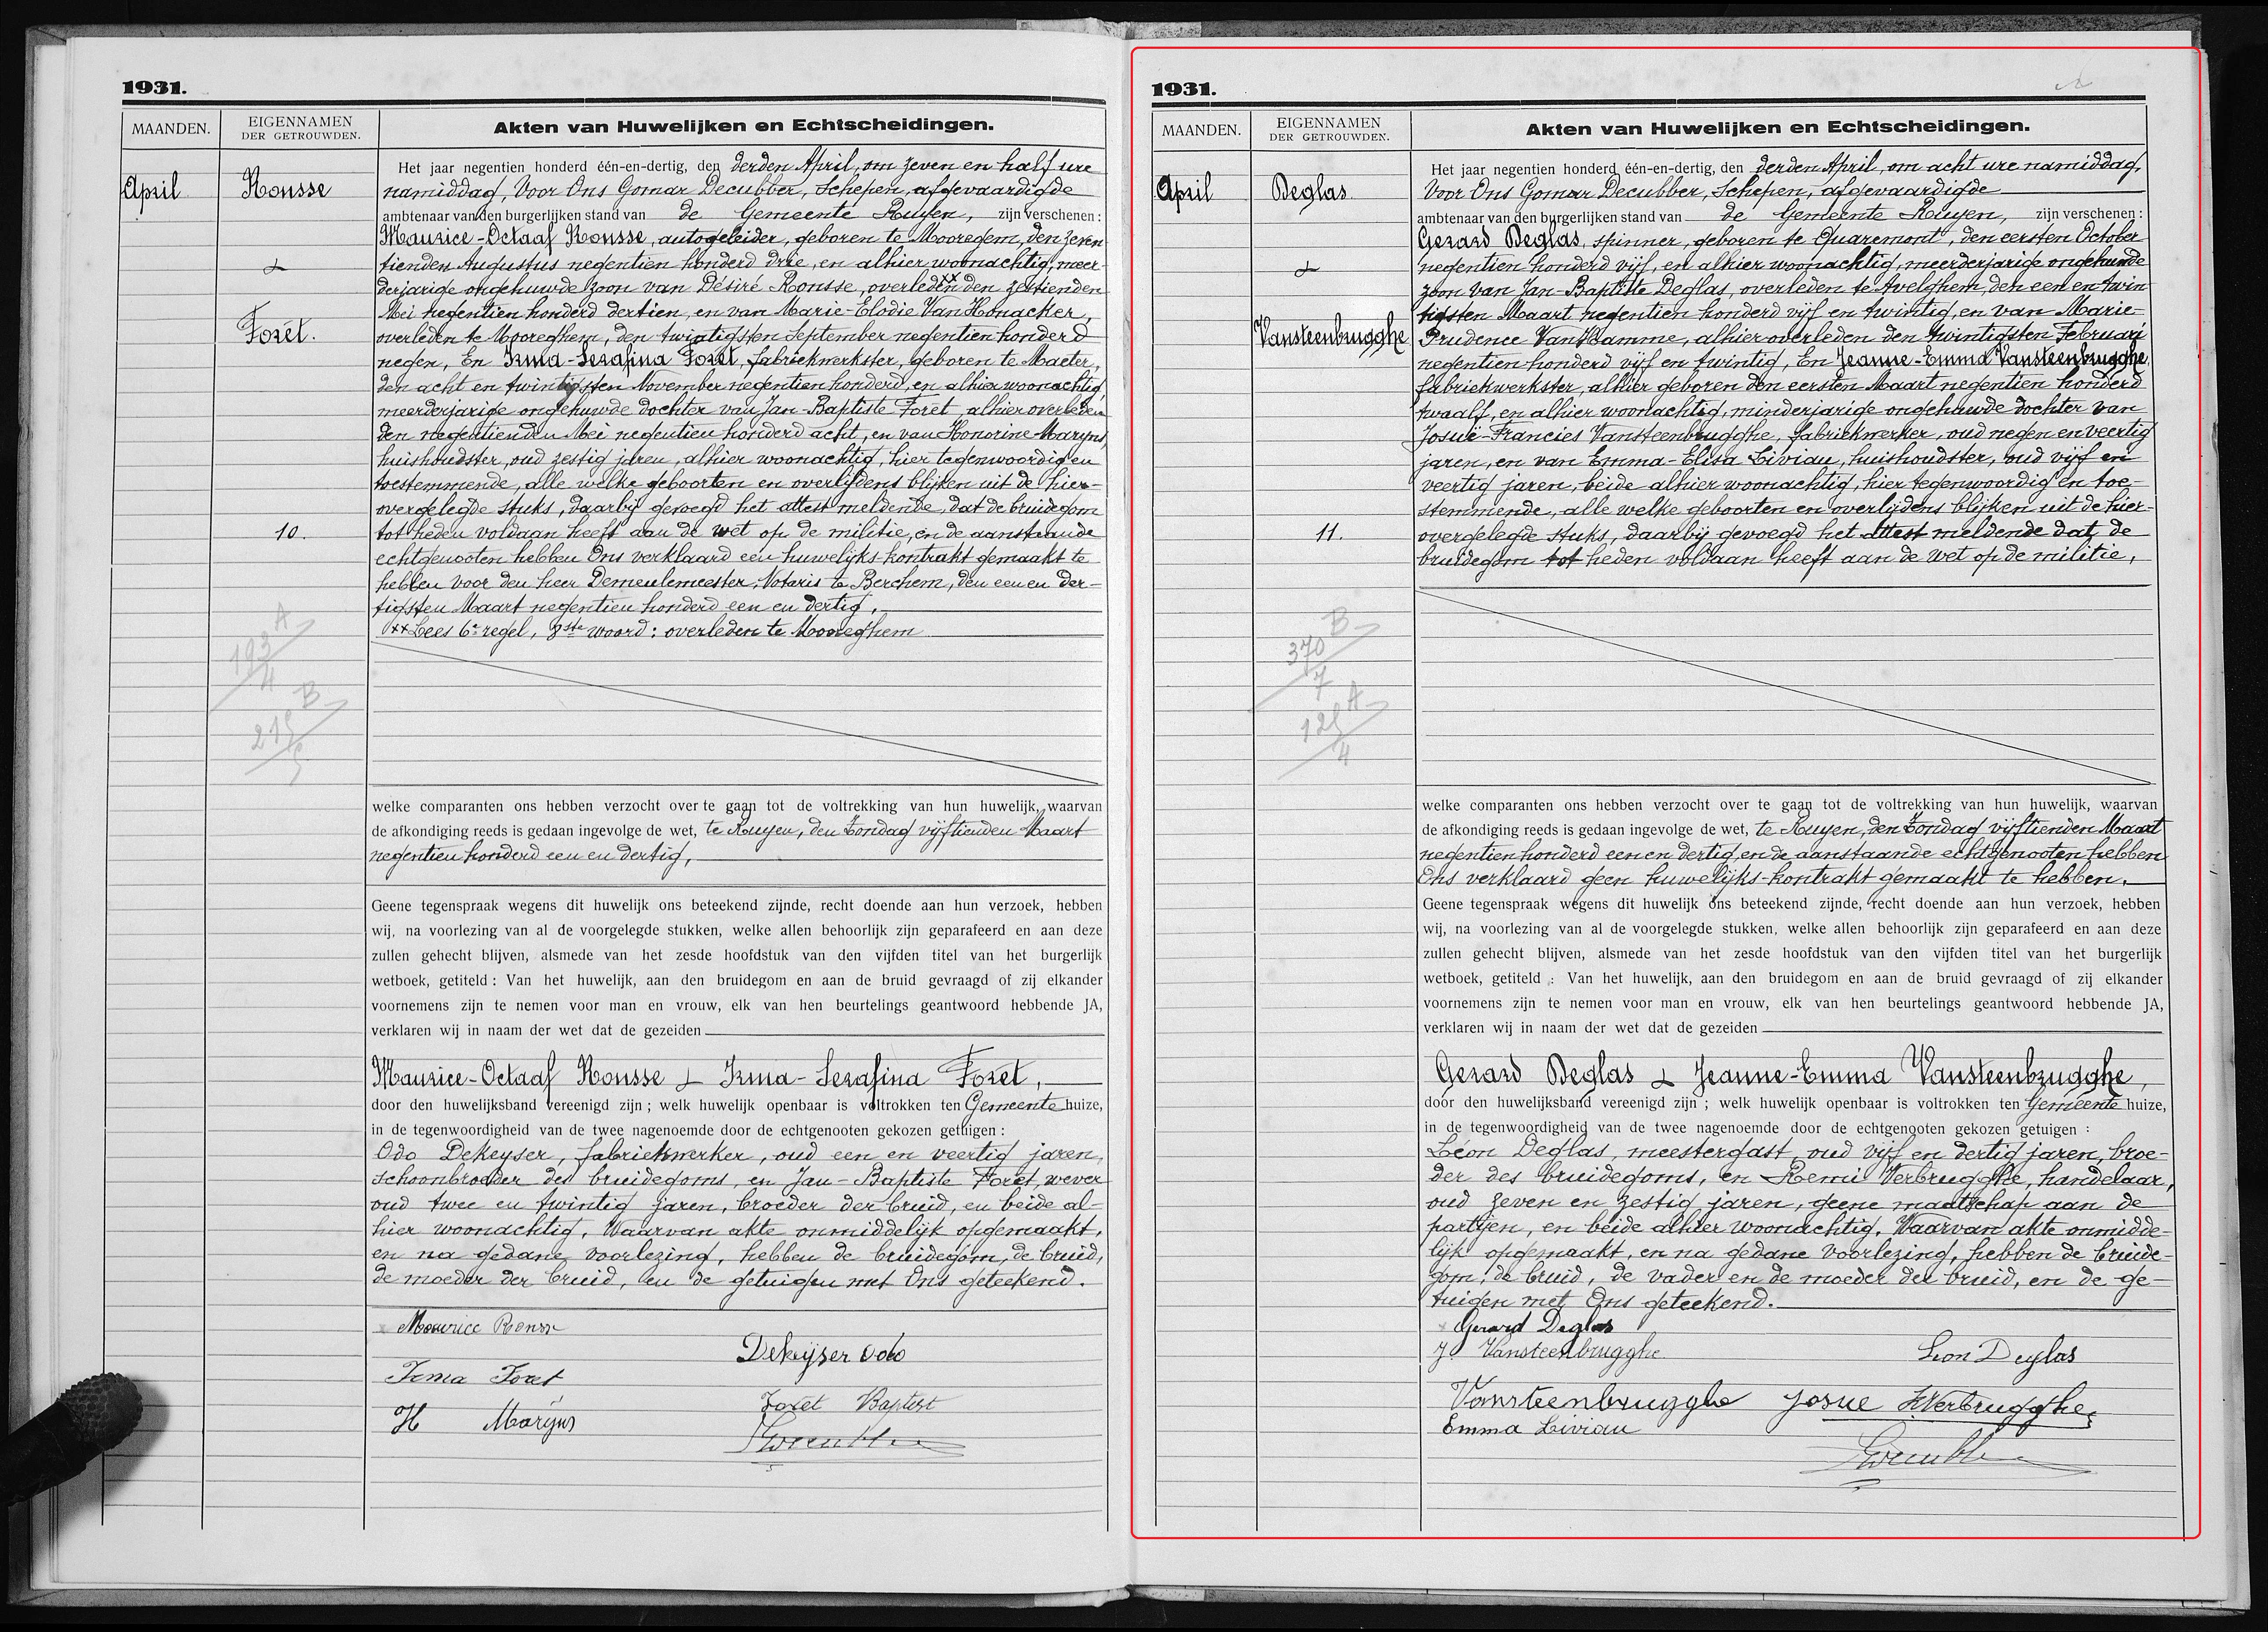 1931.
MAANDEN.
EIGENNAMEN
DER GETROUWDEN.
Akten van Huwelijken en Echtscheidingen.
April
Ronsse
&
Foret.
10.
193 A
4
215 B
5
Het jaar negentien honderd één-en-dertig, den derden April, om zeven en half ure
namiddag, Voor Ons Gomar Decubber, Schepen, afgevaardigde
ambtenaar van den burgerlijken stand van de Gemeente Ruyen, zijn verschenen :
Maurice-Octaaf Ronsse, autogeleider, geboren te Mooregem, den zeven
tienden Augustus negentien honderd drie, en alhier woonachtig, meer-
derjarige ongehuwde zoon van Désiré Ronsse, overleden xx den zestienden
Mei negentien honderd dertien, en van Marie-Elodie Van Honacker,
overleden te Mooreghem, den twintigsten September negentien honderd
negen, En Irma-Serafina Foret, fabriekwerkster, geboren te Maeter,
den acht en twintigsten November negentien honderd, en alhier woonachtig,
meerderjarige ongehuwde dochter van Jan-Baptiste Foret, alhier overleden
den negentienden Mei negentien honderd acht, en van Honorine Maryns,
huishoudster, oud zestig jaren, alhier woonachtig, hier tegenwoordig en
toestemmende, alle welke geboorten en overlijdens blijken uit de hier-
overgelegde stuks, daarbij gevoegd het attest meldende, dat de bruidegom
tot heden voldaan heeft aan de wet op de militie, en de aanstaande
echtgenooten hebben Ons verklaard een huwelijks-kontrakt gemaakt te
hebben voor den heer Demeulemeester, Notaris te Berchem, den een en der-
tigsten Maart negentien honderd een en dertig.
xx Lees 6e regel, 8ste woord : overleden te Mooreghem
welke comparanten ons hebben verzocht over te gaan tot de voltrekking van hun huwelijk, waarvan
de afkondiging reeds is gedaan ingevolge de wet, te Ruyen, den Zondag vijftienden Maart
negentien honderd een en dertig,
Geene tegenspraak wegens dit huwelijk ons beteekend zijnde, recht doende aan hun verzoek, hebben
wij, na voorlezing van al de voorgelegde stukken, welke allen behoorlijk zijn geparafeerd en aan deze
zullen gehecht blijven, alsmede van het zesde hoofdstuk van den vijfden titel van het burgerlijk
wetboek, getiteld : Van het huwelijk, aan den bruidegom en aan de bruid gevraagd of zij elkander
voornemens zijn te nemen voor man en vrouw, elk van hen beurtelings geantwoord hebbende JA,
verklaren wij in naam der wet dat de gezeiden
Maurice-Octaaf Ronsse & Irma-Serafina Foret,
door den huwelijksband vereenigd zijn ; welk huwelijk openbaar is voltrokken ten Gemeente huize,
in de tegenwoordigheid van de twee nagenoemde door de echtgenooten gekozen getuigen :
Odo Dekeyser, fabriekwerker, oud een en veertig jaren,
schoonbroeder des bruidegoms, en Jan-Baptiste Foret, wever
oud twee en twintig jaren, broeder der bruid, en beide al-
hier woonachtig, Waarvan akte onmiddelijk opgemaakt,
en na gedane voorlezing, hebben de bruidegom, de bruid,
de moeder der bruid, en de getuigen met Ons geteekend.
Maurice Ronsse
Dekeyser Odo
Irma Foret
Foret Baptist
H Maryns
1931.
MAANDEN.
EIGENNAMEN
DER GETROUWDEN.
Akten van Huwelijken en Echtscheidingen.
April
Deglas
&
Vansteenbrugghe
11.
370 B
7
125 A
4
Het jaar negentien honderd één-en-dertig, den derden April, om acht ure namiddag,
Voor Ons Gomar Decubber, Schepen, afgevaardigde
ambtenaar van den burgerlijken stand van de Gemeente Ruyen, zijn verschenen :
Gerard Deglas, spinner, geboren te Quaremont, den eersten October
negentien honderd vijf, en alhier woonachtig, meerderjarige ongehuwde
zoon van Jan-Baptiste Deglas, overleden te Avelghem, den een en twin
tigsten Maart negentien honderd vijf en twintig, en van Marie-
Prudence Van Hamme, alhier overleden den twintigsten Februari
negentien honderd vijf en twintig, En Jeanne-Emma Vansteenbrugghe,
fabriekwerkster, alhier geboren den eersten Maart negentien honderd
twaalf, en alhier woonachtig, minderjarige ongehuwde dochter van
Josuë-Francies Vansteenbrugghe, fabriekwerker, oud negen en veertig
jaren, en van Emma-Elisa Liviau, huishoudster, oud vijf en
veertig jaren, beide alhier woonachtig, hier tegenwoordig en toe-
stemmende, alle welke geboorten en overlijdens blijken uit de hier-
overgelegde stuks, daarbij gevoegd het attest meldende dat de
bruidegom tot heden voldaan heeft aan de wet op de militie,
welke comparanten ons hebben verzocht over te gaan tot de voltrekking van hun huwelijk, waarvan
de afkondiging reeds is gedaan ingevolge de wet, te Ruyen, den Zondag vijftienden Maart
negentien honderd een en dertig, en de aanstaande echtgenooten hebben
Ons verklaard geen huwelijks-kontrakt gemaakt te hebben.
Geene tegenspraak wegens dit huwelijk ons beteekend zijnde, recht doende aan hun verzoek, hebben
wij, na voorlezing van al de voorgelegde stukken, welke allen behoorlijk zijn geparafeerd en aan deze
zullen gehecht blijven, alsmede van het zesde hoofdstuk van den vijfden titel van het burgerlijk
wetboek, getiteld : Van het huwelijk, aan den bruidegom en aan de bruid gevraagd of zij elkander
voornemens zijn te nemen voor man en vrouw, elk van hen beurtelings geantwoord hebbende JA,
verklaren wij in naam der wet dat de gezeiden
Gerard Deglas & Jeanne-Emma Vansteenbrugghe,
door den huwelijksband vereenigd zijn ; welk huwelijk openbaar is voltrokken ten Gemeente huize,
in de tegenwoordigheid van de twee nagenoemde door de echtgenooten gekozen getuigen :
Léon Deglas, meestergast, oud vijf en dertig jaren, broe-
der des bruidegoms, en Remi Verbrugghe, handelaar,
oud zeven en zestig jaren, geene maatschap aan de
partijen, en beide alhier woonachtig, Waarvan akte onmidde-
lijk opgemaakt, en na gedane voorlezing, hebben de bruide-
gom, de bruid, de vader en de moeder der bruid, en de ge-
tuigen met Ons geteekend.
Gerard Deglas
J. Vansteenbrugghe
Leon Deglas
Vansteenbrugghe Josue
RVerbrugghe
Emma Liviau